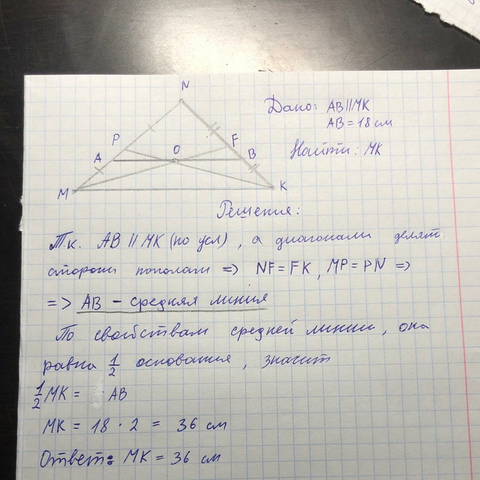 N
Дано: AB||MK
AB = 18 см
Найти: MK
P
O
F
A
B
M
K
Решения:
Т.к. AB || MK (по усл), а диагонали делят
стороны пополам => NF = FK, MP = PN =>
=> AB - средняя линия
По свойствам средней линии, она
равна 1/2 основания, значит
1/2 MK = AB
MK = 18 · 2 = 36 см
Ответ: MK = 36 см